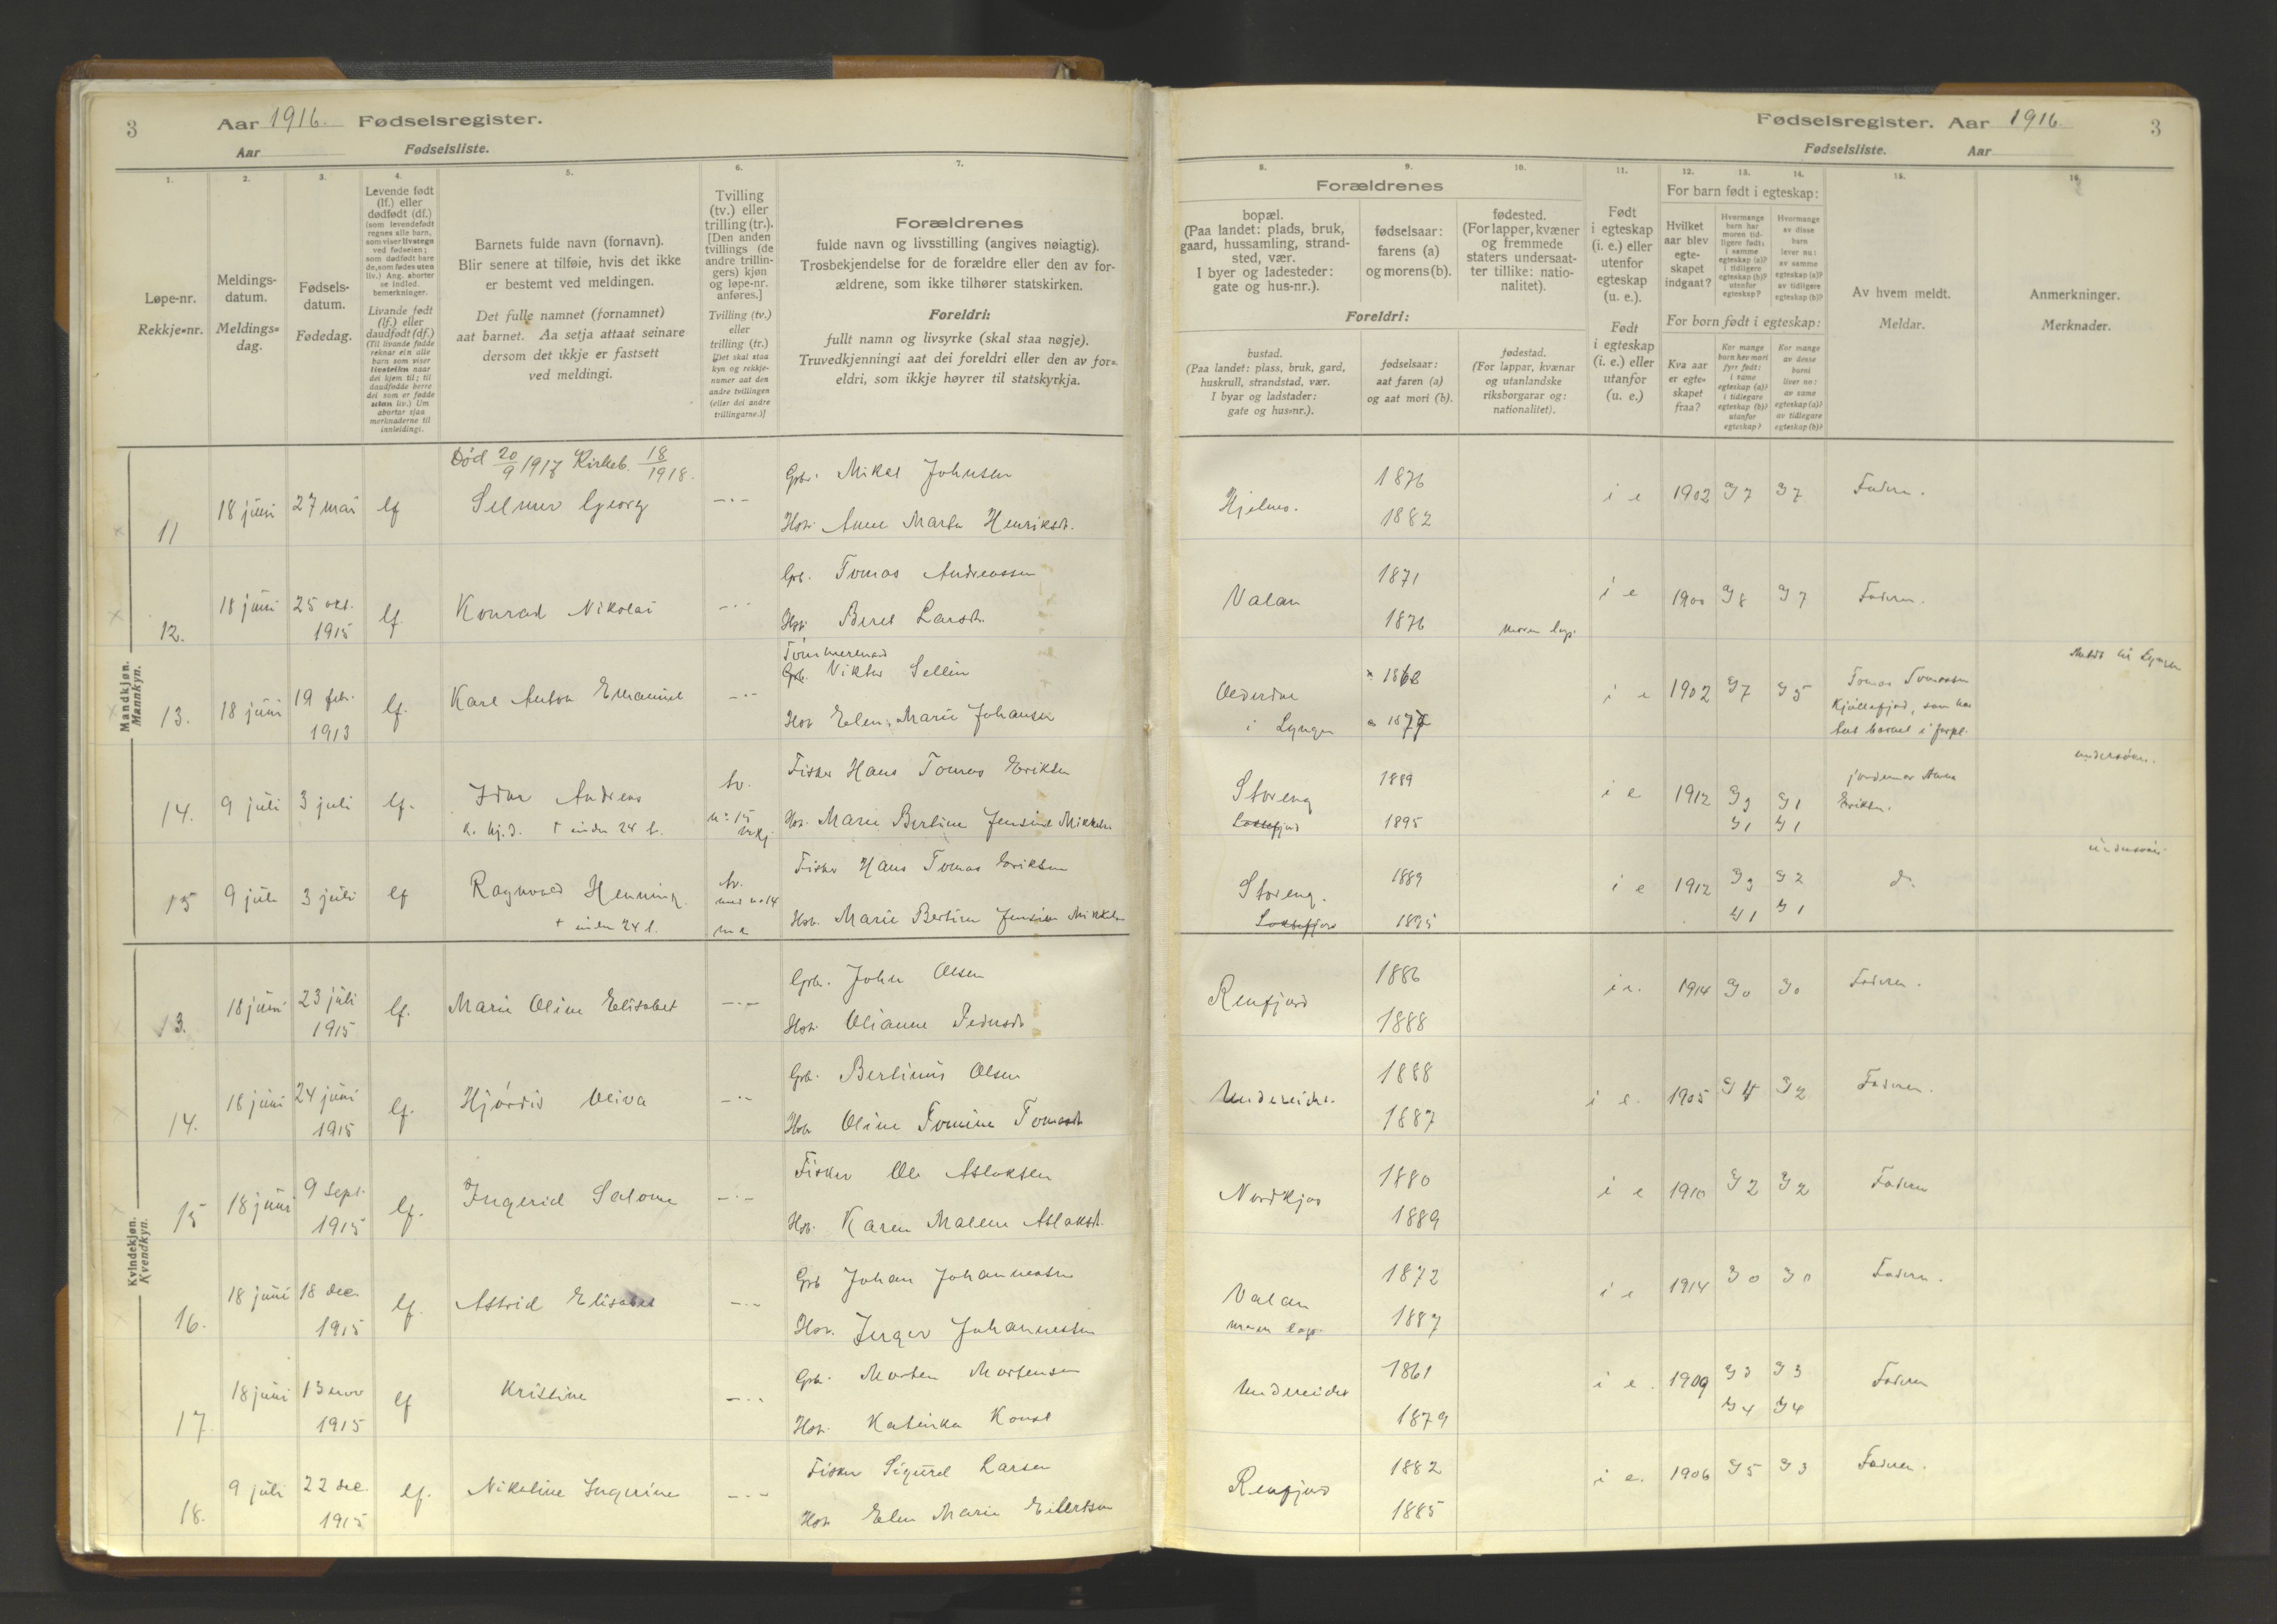 3 Aar 1916. Fødselsregister.
Aar Fødselsliste.
Fødselsregister. Aar 1916. 3
Fødselsliste. Aar
1. 2. 3. 4. 5. 6. 7.
Løpe-nr.
Rekkje-nr.
Meldings-
datum.
Meldings-
dag.
Fødsels-
datum.
Fødedag.
Levende født
(lf.) eller
dødfødt (df.)
(som levendefødt
regnes alle barn,
som viser livstegn
ved fødselen;
som dødfødt bare
de, som fødes uten
liv.) Ang. aborter
se indled.
bemerkninger.
Livande født
(lf.) eller
daudfødt (df.)
(Til livande fødde
reknar ein alle
barn som viser
livsteikn naar
dei kjem til; til
daudfødde berre
dei som er fødde
utan liv.) Um
abortar sjaa
merknaderne til
innleidingi.
Barnets fulde navn (fornavn).
Blir senere at tilføie, hvis det ikke
er bestemt ved meldingen.
Det fulle namnet (fornamnet)
aat barnet. Aa setja attaat seinare
dersom det ikkje er fastsett
ved meldingi.
Tvilling
(tv.) eller
trilling (tr.).
[Den anden
tvillings (de
andre trillin-
gers) kjøn
og løpe-nr.
anføres.]
Tvilling (tv.)
eller
trilling (tr.)
[Det skal staa
kyn og rekkje-
numer aat den
andre tvillingen
(eller dei andre
trillingarne.)]
Forældrenes
fulde navn og livsstilling (angives nøiagtig).
Trosbekjendelse for de forældre eller den av for-
ældrene, som ikke tilhører statskirken.
Foreldri:
fullt namn og livsyrke (skal staa nøgje).
Truvedkjenningi aat dei foreldri eller den av for-
eldri, som ikkje høyrer til statskyrkja.
8. 9. 10. 11. 12. 13. 14. 15. 16.
Forældrenes
bopæl.
(Paa landet: plads, bruk,
gaard, hussamling, strand-
sted, vær.
I byer og ladesteder:
gate og hus-nr.).
fødselsaar:
farens (a)
og morens (b).
fødested.
(For lapper, kvæner
og fremmede
staters undersaat-
ter tillike: natio-
nalitet).
Foreldri:
bustad.
(Paa landet: plass, bruk, gard,
huskrull, strandstad, vær.
I byar og ladstader:
gate og hus-nr.).
fødselsaar:
aat faren (a)
og aat mori (b).
fødestad.
(For lappar, kvænar
og utanlandske
riksborgarar og:
nationalitet).
Født
i egteskap
(i. e.) eller
utenfor
egteskap
(u. e.).
Født
i egteskap
(i. e.) eller
utanfor
(u. e.)
For barn født i egteskap:
Hvilket
aar blev
egte-
skapet
indgaat?
Hvormange
barn har
moren tid-
ligere født:
i samme
egteskap (a)?
i tidligere
egteskap (b)?
utenfor
egteskap?
Hvormange
av disse
barn
lever nu:
av samme
egteskap (a)?
av tidligere
egteskap (b)?
For born født i egteskap:
Kva aar
er egte-
skapet
fraa?
Kor mange
born hev mori
fyrr født:
i same
egteskap (a)?
i tidlegare
egteskap (b)?
utanfor
egteskap?
Kor mange
av desse
borni
liver no:
av same
egteskap (a)?
av tidlegare
egteskap (b)?
Av hvem meldt.
Meldar.
Anmerkninger.
Merknader.
Mandkjøn.
Mannkyn.
Død 20/9 1917 Kirkeb. 18/1918.
11 18 juni 27 mai lf Selmer Georg Gbr. Mikal Johnsen
Hst. Anne Marta Henriksdt.
Kjelnes. 1876 1882 i e 1902 7 7 Faderen.
12. 18 juni 25 okt. 1915 lf. Konrad Nikolai Gbr. Tomas Andreassen
Hst. Beret Larsdt.
Valan 1871 1876 moren lap. i e 1900 8 7 Faderen.
Tømmermand
13. 18 juni 19 febr. 1913 lf. Karl Anton Emanuel Viktor Sellin
Hst. Elen Marie Johansen
i Lyngen 1862 1877 i e 1902 7 5 Tomas Tomassen
Kjøllefjord, som har
14. 9 juli 3 juli lf. Andreas tv. Fisker Hans Tomas Eriksen
† inden 24 t. n: 15
Hst. Marie Bertine Jensine Mikkelsen
Storeng 1889 1895 i e 1912 3 1 jordemor Anna
Eriksen.
1 1
15 9 juli 3 juli lf Ragnvald Henning. tv. Fisker Hans Tomas Eriksen
† inden 24 t. med no 14
Hst. Marie Bertine Jensine Mikkelsen
Storeng. 1889 1895 i e 1912 3 2 do.
1 1
Kvindekjøn.
Kvendkyn.
13. 18 juni 23 juli 1915 lf. Marie Oline Elisabet Gbr. John Olsen
Hst. Olianne Pedersdt
Renfjord 1886 1888 i e. 1914 0 0 Faderen.
14. 18 juni 24 juni 1915 lf. Hjørdis Oliva Gbr. Bertinus Olsen
Hst. Oline Tomine Tomasdt
Undereidet. 1888 1887 i e. 1905 4 2 Faderen.
15 18 juni 9 sept. 1915 lf. Ingerid Salome Fisker Ole Aslaksen
Hst. Karen Malene Aslaksdt.
Nordkjos 1880 1889 i e 1910 2 2 Faderen
16. 18 juni 18 dec. 1915 lf. Astrid Elisabet Gbr Johan Johannesen
Hst. Inger Johannesen
Valan moren lap. 1872 1887 i e 1914 0 0 Faderen.
17. 18 juni 13 nov 1915 lf Kristine Gbr. Morten Mortensen
Hst. Katinka
Undereidet 1861 1879 i e. 1909 3 3 Faderen
4 4
18. 9 juli 22 dec. 1915 lf. Nikoline Ingerine Fisker Sigurd Larsen
Hst. Elen Marie Eilertsen
Renfjord 1882 1885 i e. 1906 5 3 Faderen.